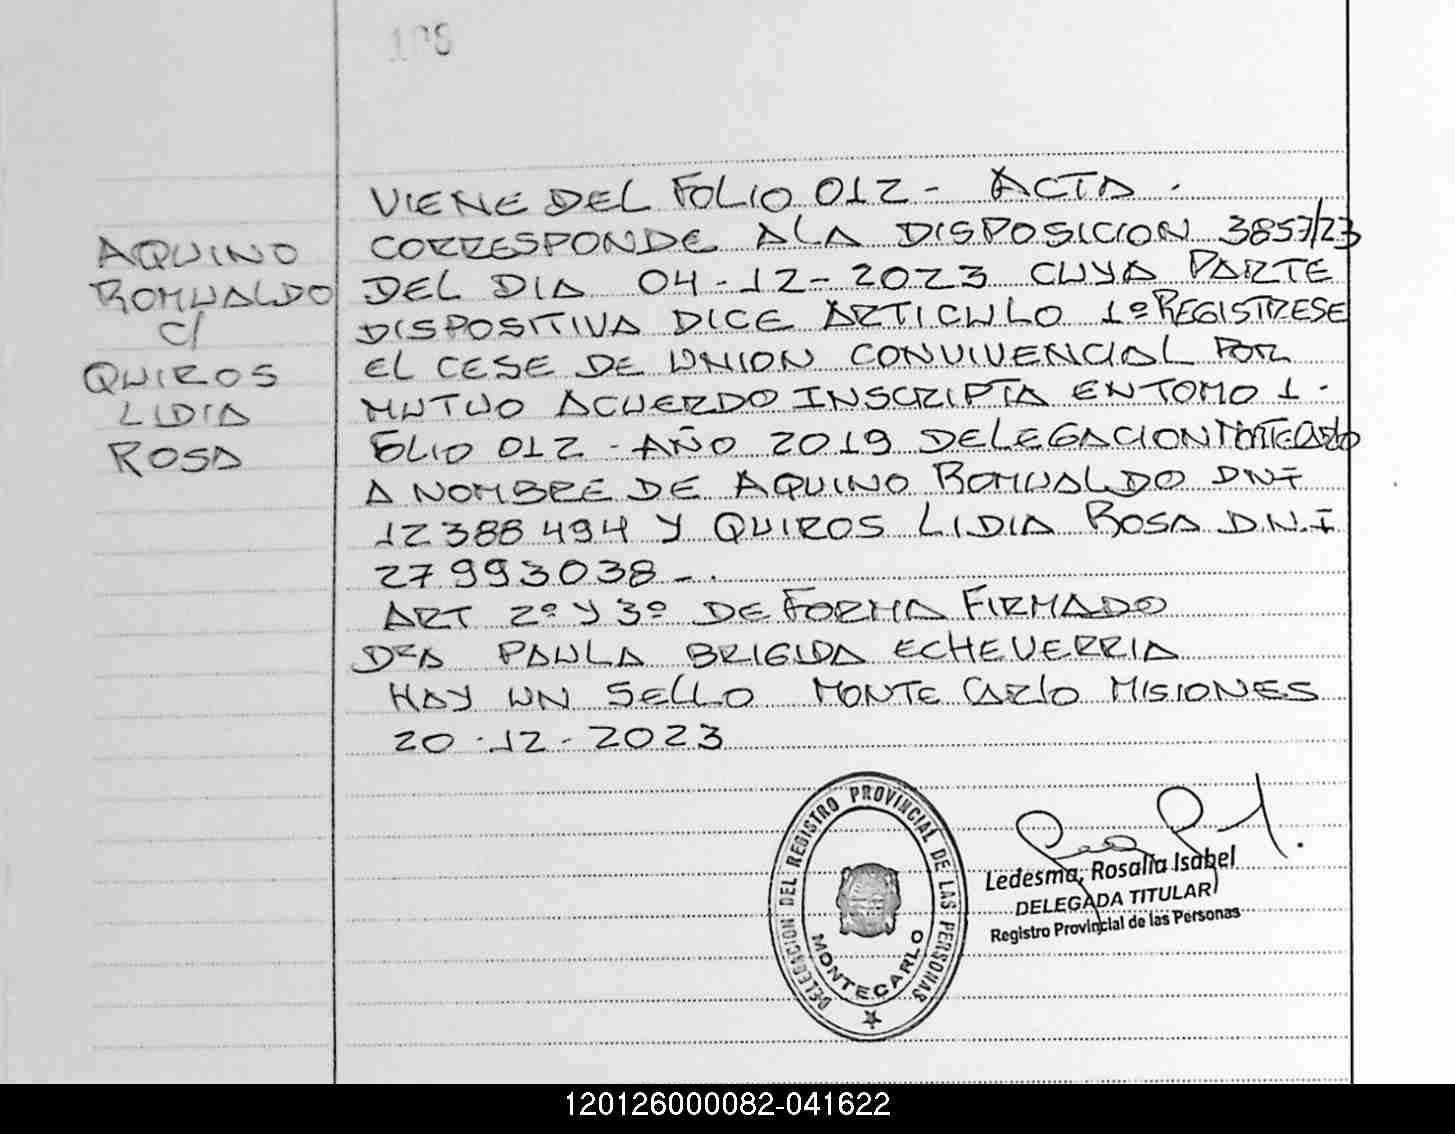 AQUINO
ROMUALDO
C/
QUIROS
LIDIA
ROSA
VIENE DEL FOLIO 012 - ACTA .
CORRESPONDE A LA DISPOSICION 3857/23
DEL DIA 04-12-2023 CUYA PARTE
DISPOSITIVA DICE ARTICULO 1º REGISTRESE
EL CESE DE UNION CONVIVENCIAL POR
MUTUO ACUERDO INSCRIPTA EN TOMO 1 -
FOLIO 012 - AÑO 2019 DELEGACION MonteCarlo
A NOMBRE DE AQUINO ROMUALDO DNI
12388494 Y QUIROS LIDIA ROSA D.N.I
27993038 - .
ART 2º Y 3º DE FORMA FIRMADO
DRA PAULA BRIGIDA ECHEVERRIA
HAY UN SELLO MONTE CARLO MISIONES
20-12-2023
DELEGACION DEL REGISTRO PROVINCIAL DE LAS PERSONAS
MONTECARLO
Ledesma, Rosalia Isabel
DELEGADA TITULAR
Registro Provincial de las Personas
120126000082-041622